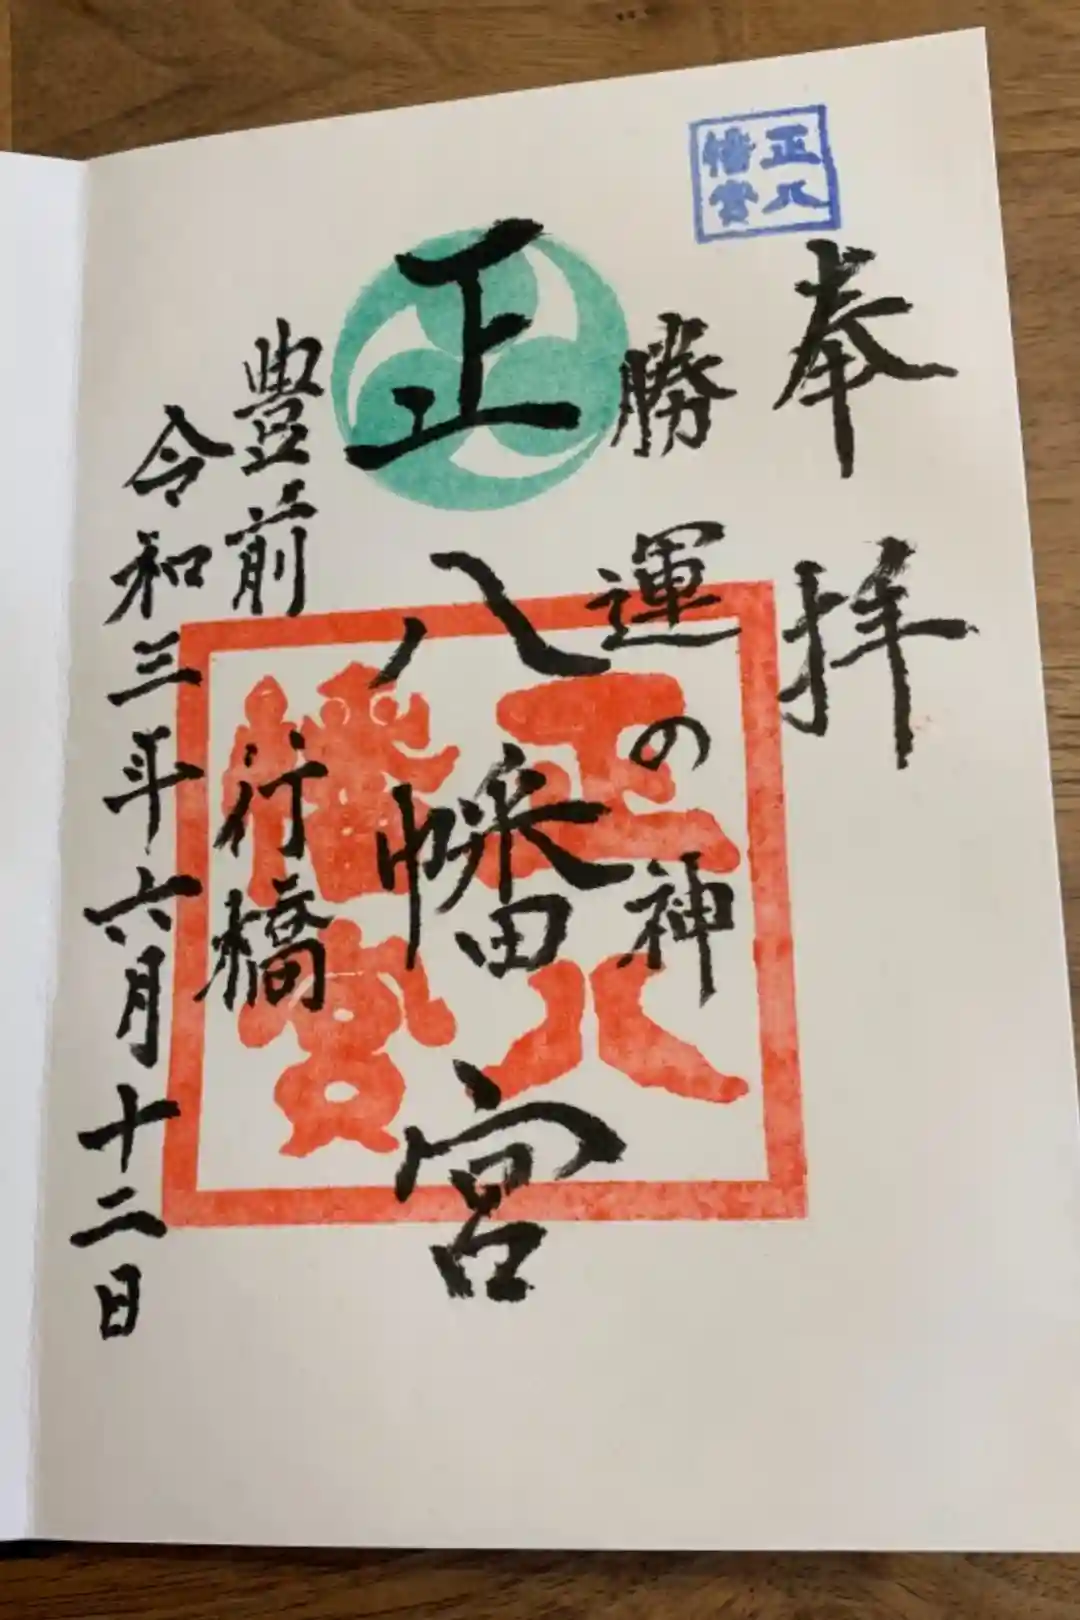 奉拝
正八
幡宮
勝運の神
正八幡宮
正八
幡宮
豊前 行橋
令和三年六月十二日